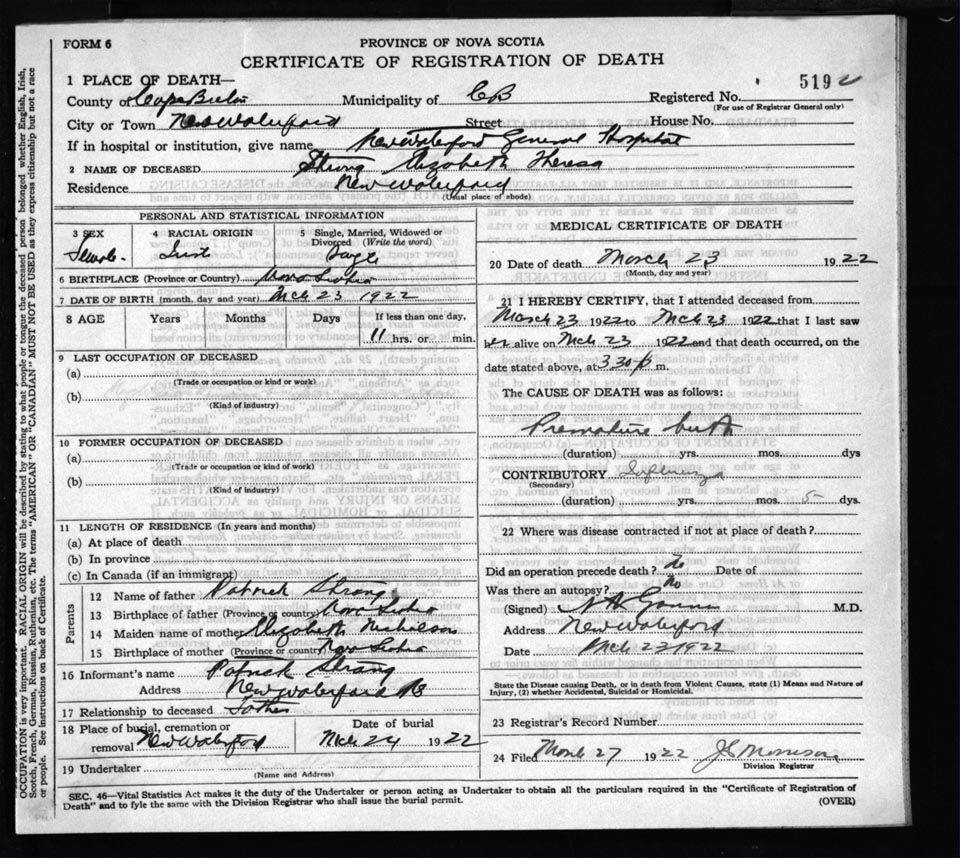 FORM 6
PROVINCE OF NOVA SCOTIA
CERTIFICATE OF REGISTRATION OF DEATH
1 PLACE OF DEATH—
County of Cape Breton Municipality of CB Registered No. 5192
(For use of Registrar General only)
City or Town New Waterford Street House No.
If in hospital or institution, give name New Waterford General Hospital
2 NAME OF DECEASED Strang Elizabeth Theresa
Residence New Waterford
(Usual place of abode)
PERSONAL AND STATISTICAL INFORMATION
3 SEX 4 RACIAL ORIGIN 5 Single, Married, Widowed or Divorced (Write the word)
Female Single
6 BIRTHPLACE (Province or Country) Nova Scotia
7 DATE OF BIRTH (month, day and year) Mch 23 1922
8 AGE Years Months Days If less than one day,
11 hrs. or min.
9 LAST OCCUPATION OF DECEASED
(a)
(Trade or occupation or kind or work)
(b)
(Kind of industry)
10 FORMER OCCUPATION OF DECEASED
(a)
(Trade or occupation or kind of work)
(b)
(Kind of industry)
11 LENGTH OF RESIDENCE (In years and months)
(a) At place of death
(b) In province
(c) In Canada (if an immigrant)
Parents
12 Name of father Patrick Strang
13 Birthplace of father (Province or country) Nova Scotia
14 Maiden name of mother Elizabeth Nicholson
15 Birthplace of mother (Province or country) Nova Scotia
16 Informant's name Patrick Strang
Address New Waterford CB
17 Relationship to deceased Father
18 Place of burial, cremation or removal New Waterford Date of burial Mch 24 1922
19 Undertaker
(Name and Address)
MEDICAL CERTIFICATE OF DEATH
20 Date of death March 23 1922
(Month, day and year)
21 I HEREBY CERTIFY, that I attended deceased from
March 23 1922 to Mch 23 1922 that I last saw
her alive on Mch 23 1922 and that death occurred, on the
date stated above, at 3 30 p m.
The CAUSE OF DEATH was as follows:
Premature birth
(duration) yrs. mos. dys
CONTRIBUTORY Influenza
(Secondary)
(duration) yrs. mos. 5 dys.
22 Where was disease contracted if not at place of death?
Did an operation precede death? No Date of
Was there an autopsy? No
(Signed) M.D.
Address New Waterford
Date Mch 23 1922
State the Disease causing Death, or in death from Violent Causes, state (1) Means and Nature of
Injury, (2) whether Accidental, Suicidal or Homicidal.
23 Registrar's Record Number
24 Filed March 27 1922 Morrison
Division Registrar
SEC. 46—Vital Statistics Act makes it the duty of the Undertaker or person acting as Undertaker to obtain all the particulars required in the "Certificate of Registration of
Death" and to fyle the same with the Division Registrar who shall issue the burial permit.
(OVER)
OCCUPATION is very important. RACIAL ORIGIN will be described by stating to what people or tongue the deceased person belonged whether English, Irish,
Scotch, French, German, Russian, Ruthenian, etc. The terms "AMERICAN" OR "CANADIAN" MUST NOT BE USED as they express citizenship but not a race
or people. See instructions on back of Certificate.